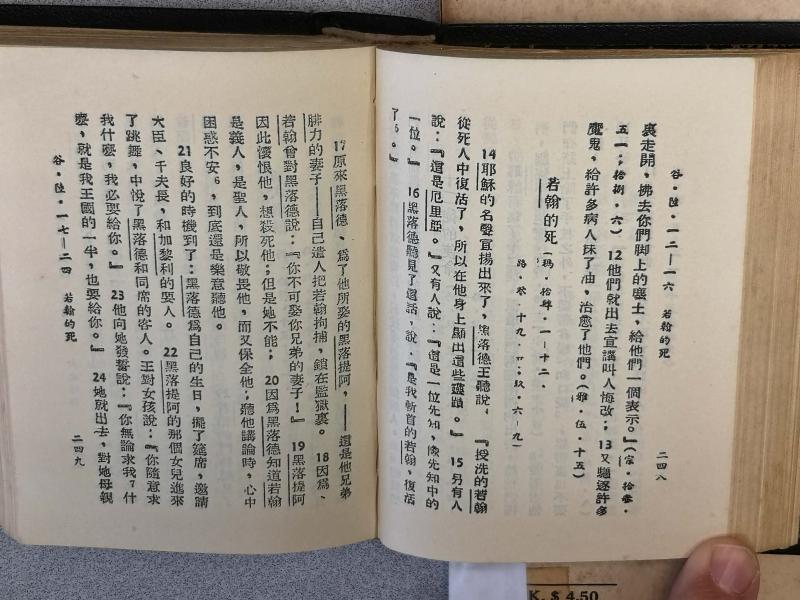 谷·陸·一二—一六 若翰的死 二四八
裏走開，拂去你們脚上的塵土，給他們一個表示。』(宗·拾叁·
五一；拾捌·六) 12他們就出去宣講叫人悔改；13又驅逐許多
魔鬼，給許多病人抹了油，治愈了他們。(雅·伍·十五)
若翰的死 (瑪·拾肆·一—十二·
路·叁·十九·廿；玖·六—九)
14耶穌的名聲宣揚出來了，黑落德王聽說，『授洗的若翰
從死人中復活了，所以在他身上顯出這些靈蹟。』15另有人
說：『這是厄里亞。』又有人說：『這是一位先知，像先知中的
一位。』16黑落德聽見了這話，說，『是我斬首的若翰，復活
了。』
17原來黑落德、爲了他所娶的黑落提阿，——這是他兄弟
腓力的妻子——自己遣人把若翰拘捕，鎖在監獄裏。18因爲、
若翰曾對黑落德說：『你不可娶你兄弟的妻子！』19黑落提阿
因此懷恨他，想殺死他；但是她不能；20因爲黑落德知道若翰
是義人，是聖人，所以敬畏他，而又保全他；聽他講論時，心中
困惑不安6，到底還是樂意聽他。
21良好的時機到了：黑落德爲自己的生日，擺了筵席，邀請
大臣、千夫長，和加黎利的要人。22黑落提阿的那個女兒進來
了跳舞，中悅了黑落德和同席的客人。王對女孩說：『你隨意求
我什麼，我必要給你。』23他向她發誓說：『你無論求我7什
麼，就是我王國的一半，也要給你。』24她就出去，對她母親
谷·陸·一七—二四 若翰的死 二四九
K. $ 4.50